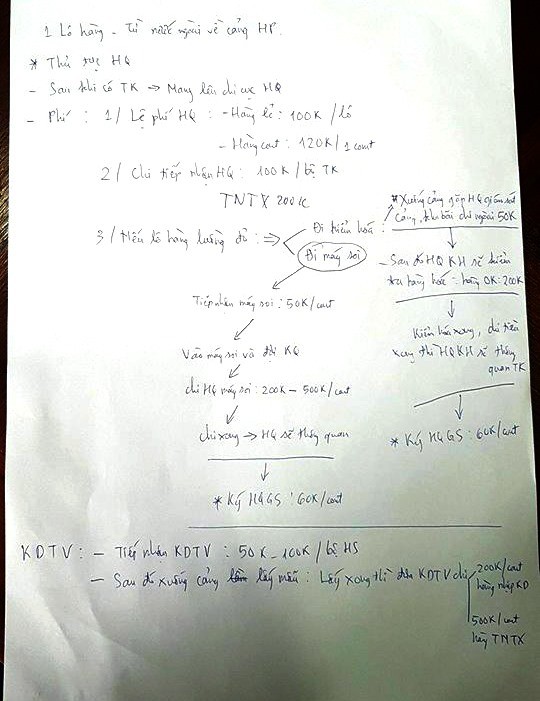 1 Lô hàng - Từ nước ngoài về cảng HP.
* Thủ tục HQ
- Sau khi có TK → Mang lên chi cục HQ
- Phí : 1/ Lệ phí HQ : - Hàng lẻ : 100K/lô
- Hàng cont : 120K/1 cont
2/ Chi tiếp nhận HQ : 100K/bộ TK
TNTX 200K
3/ Nếu lô hàng luồng đỏ : ⇒
Đi kiểm hóa :
Đi máy soi
Tiếp nhận máy soi : 50K/cont
Vào máy soi và đợi KQ
chi HQ máy soi : 200K - 500K/cont
chi xong → HQ sẽ thông quan
* Ký HQGS : 60K/cont
* Xuống cảng gặp HQ giám sát
cảng, kho bãi chi người 50K
- Sau đó HQ KH sẽ kiểm
tra hàng hoá : hàng OK : 200K
Kiểm hóa xong, chi tiền
xong thì HQKH sẽ thông
quan TK
* Ký HQGS : 60K/cont
KDTV : - Tiếp nhận KDTV : 50K - 100K/bộ HS
- Sau đó xuống cảng lấy mẫu : Lấy xong thì KDTV chi
200K/cont
hàng nhập KD
500K/cont
hàng TNTX